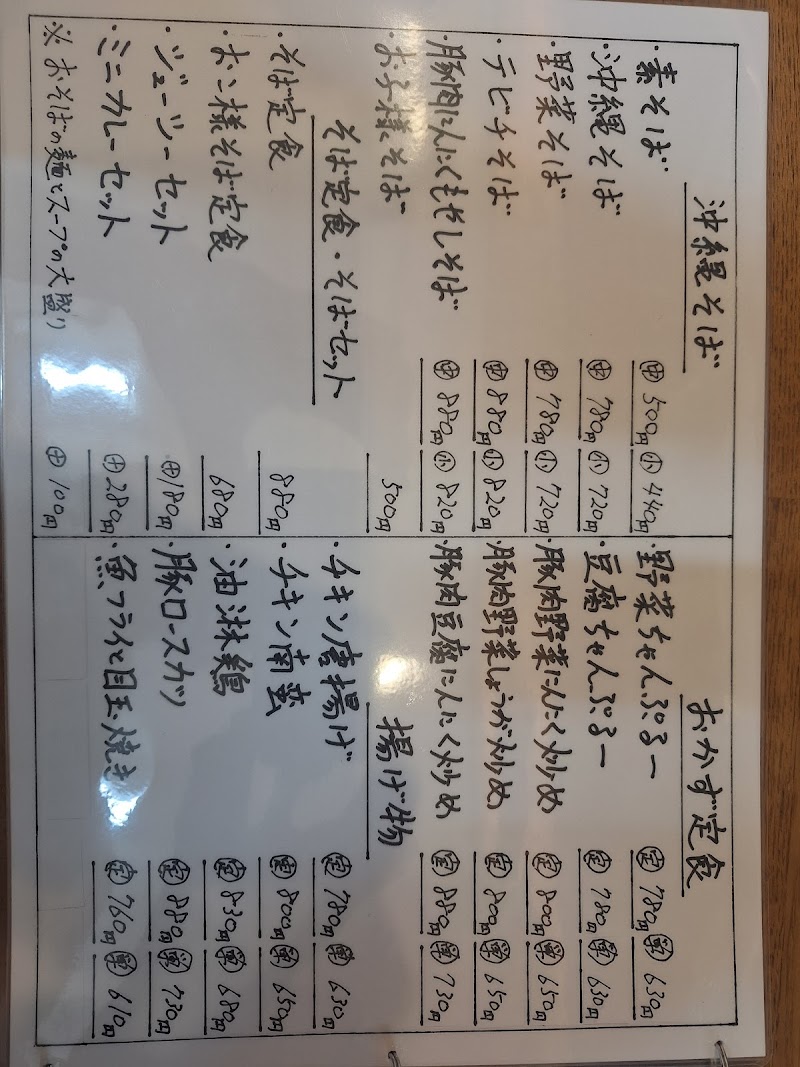 沖縄そば
・素そば ㊥500円 ㊙440円
・沖縄そば ㊥780円 小720円
・野菜そば ㊥780円 小720円
・テビチそば ㊥880円 小820円
・豚肉にんにくもやしそば ㊥880円 小820円
・お子様そば 500円
そば定食・そばセット
・そば定食 880円
・お子様そば定食 680円
・ジューシーセット ㊉180円
・ミニカレーセット ㊉280円
※おそばの麺とスープの大盛り ㊉100円
おかず定食
・野菜ちゃんぷるー 定780円 単630円
・豆腐ちゃんぷるー 定780円 単630円
・豚肉野菜にんにく炒め 定800円 単650円
・豚肉野菜しょうが炒め 定800円 単650円
・豚肉豆腐にんにく炒め 定880円 単730円
揚げ物
・チキン唐揚げ 定780円 単630円
・チキン南蛮 定800円 単650円
・油淋鶏 定830円 単680円
・豚ロースカツ 定880円 単730円
・魚フライと目玉焼き 定760円 単610円